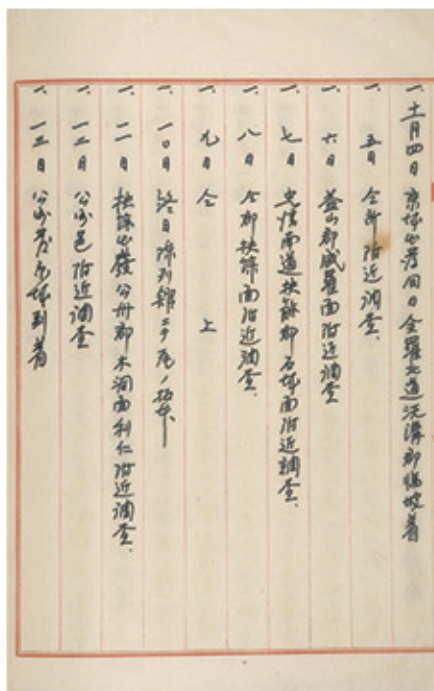 一、十一月四日 京城出発同日全羅北道沃溝郡臨陂着
一、五日 仝所附近調査、
一、六日 益山郡咸羅面附近調査
一、七日 忠清南道扶餘郡石城面附近調査、
一、八日 仝郡扶餘面附近調査、
一、九日 仝 上
一、一〇日 終日陳列館ニテ瓦ノ拓本
一、一一日 扶餘出發公州郡木洞面利仁附近調査、
一、一二日 公州邑附近調査
一、一三日 公州發京城到着